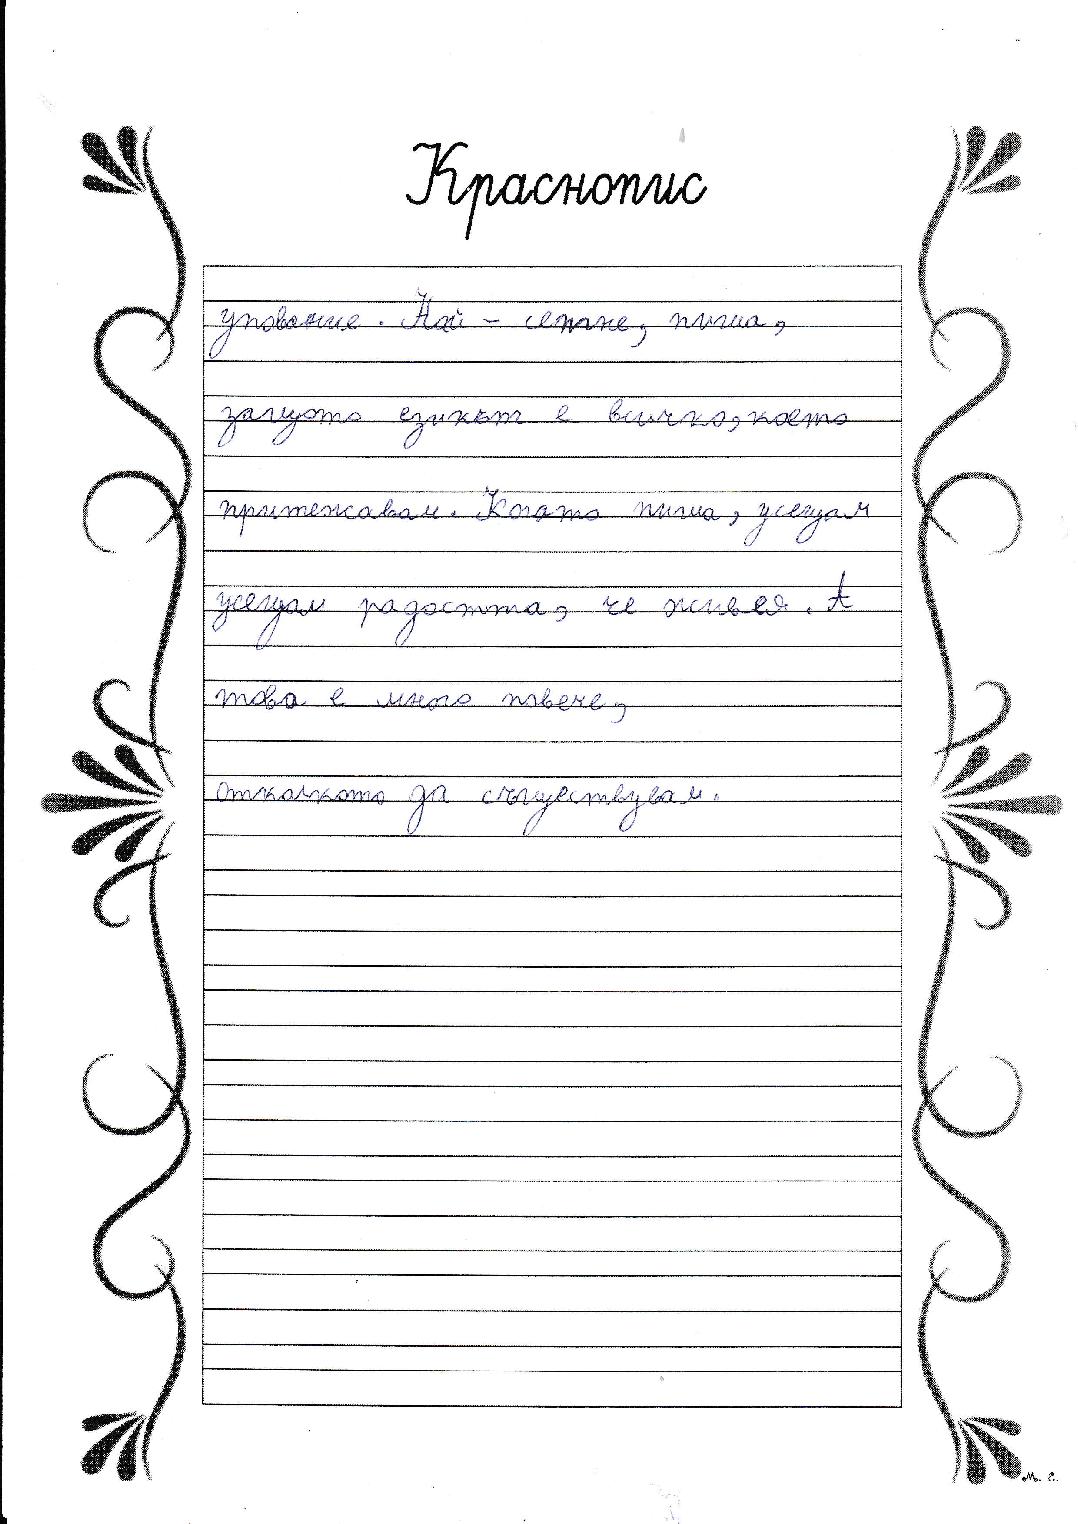 Краснопис
упование. Най - сетне, пиша,
защото езикът е всичко, което
притежавам. Когато пиша, усещам
усещам радостта, че живея. А
това е много повече,
отколкото да съществувам.
М. Е.